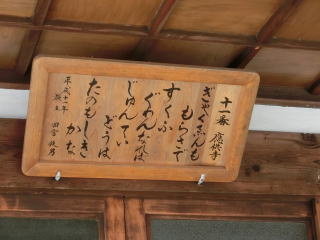 十一番 慶徳寺
ぎゃくえんも
もらさで
すくふ
ぐわんなれば
じゅんてい
どうは
たのもしきかな
平成十一年
願主 田宮